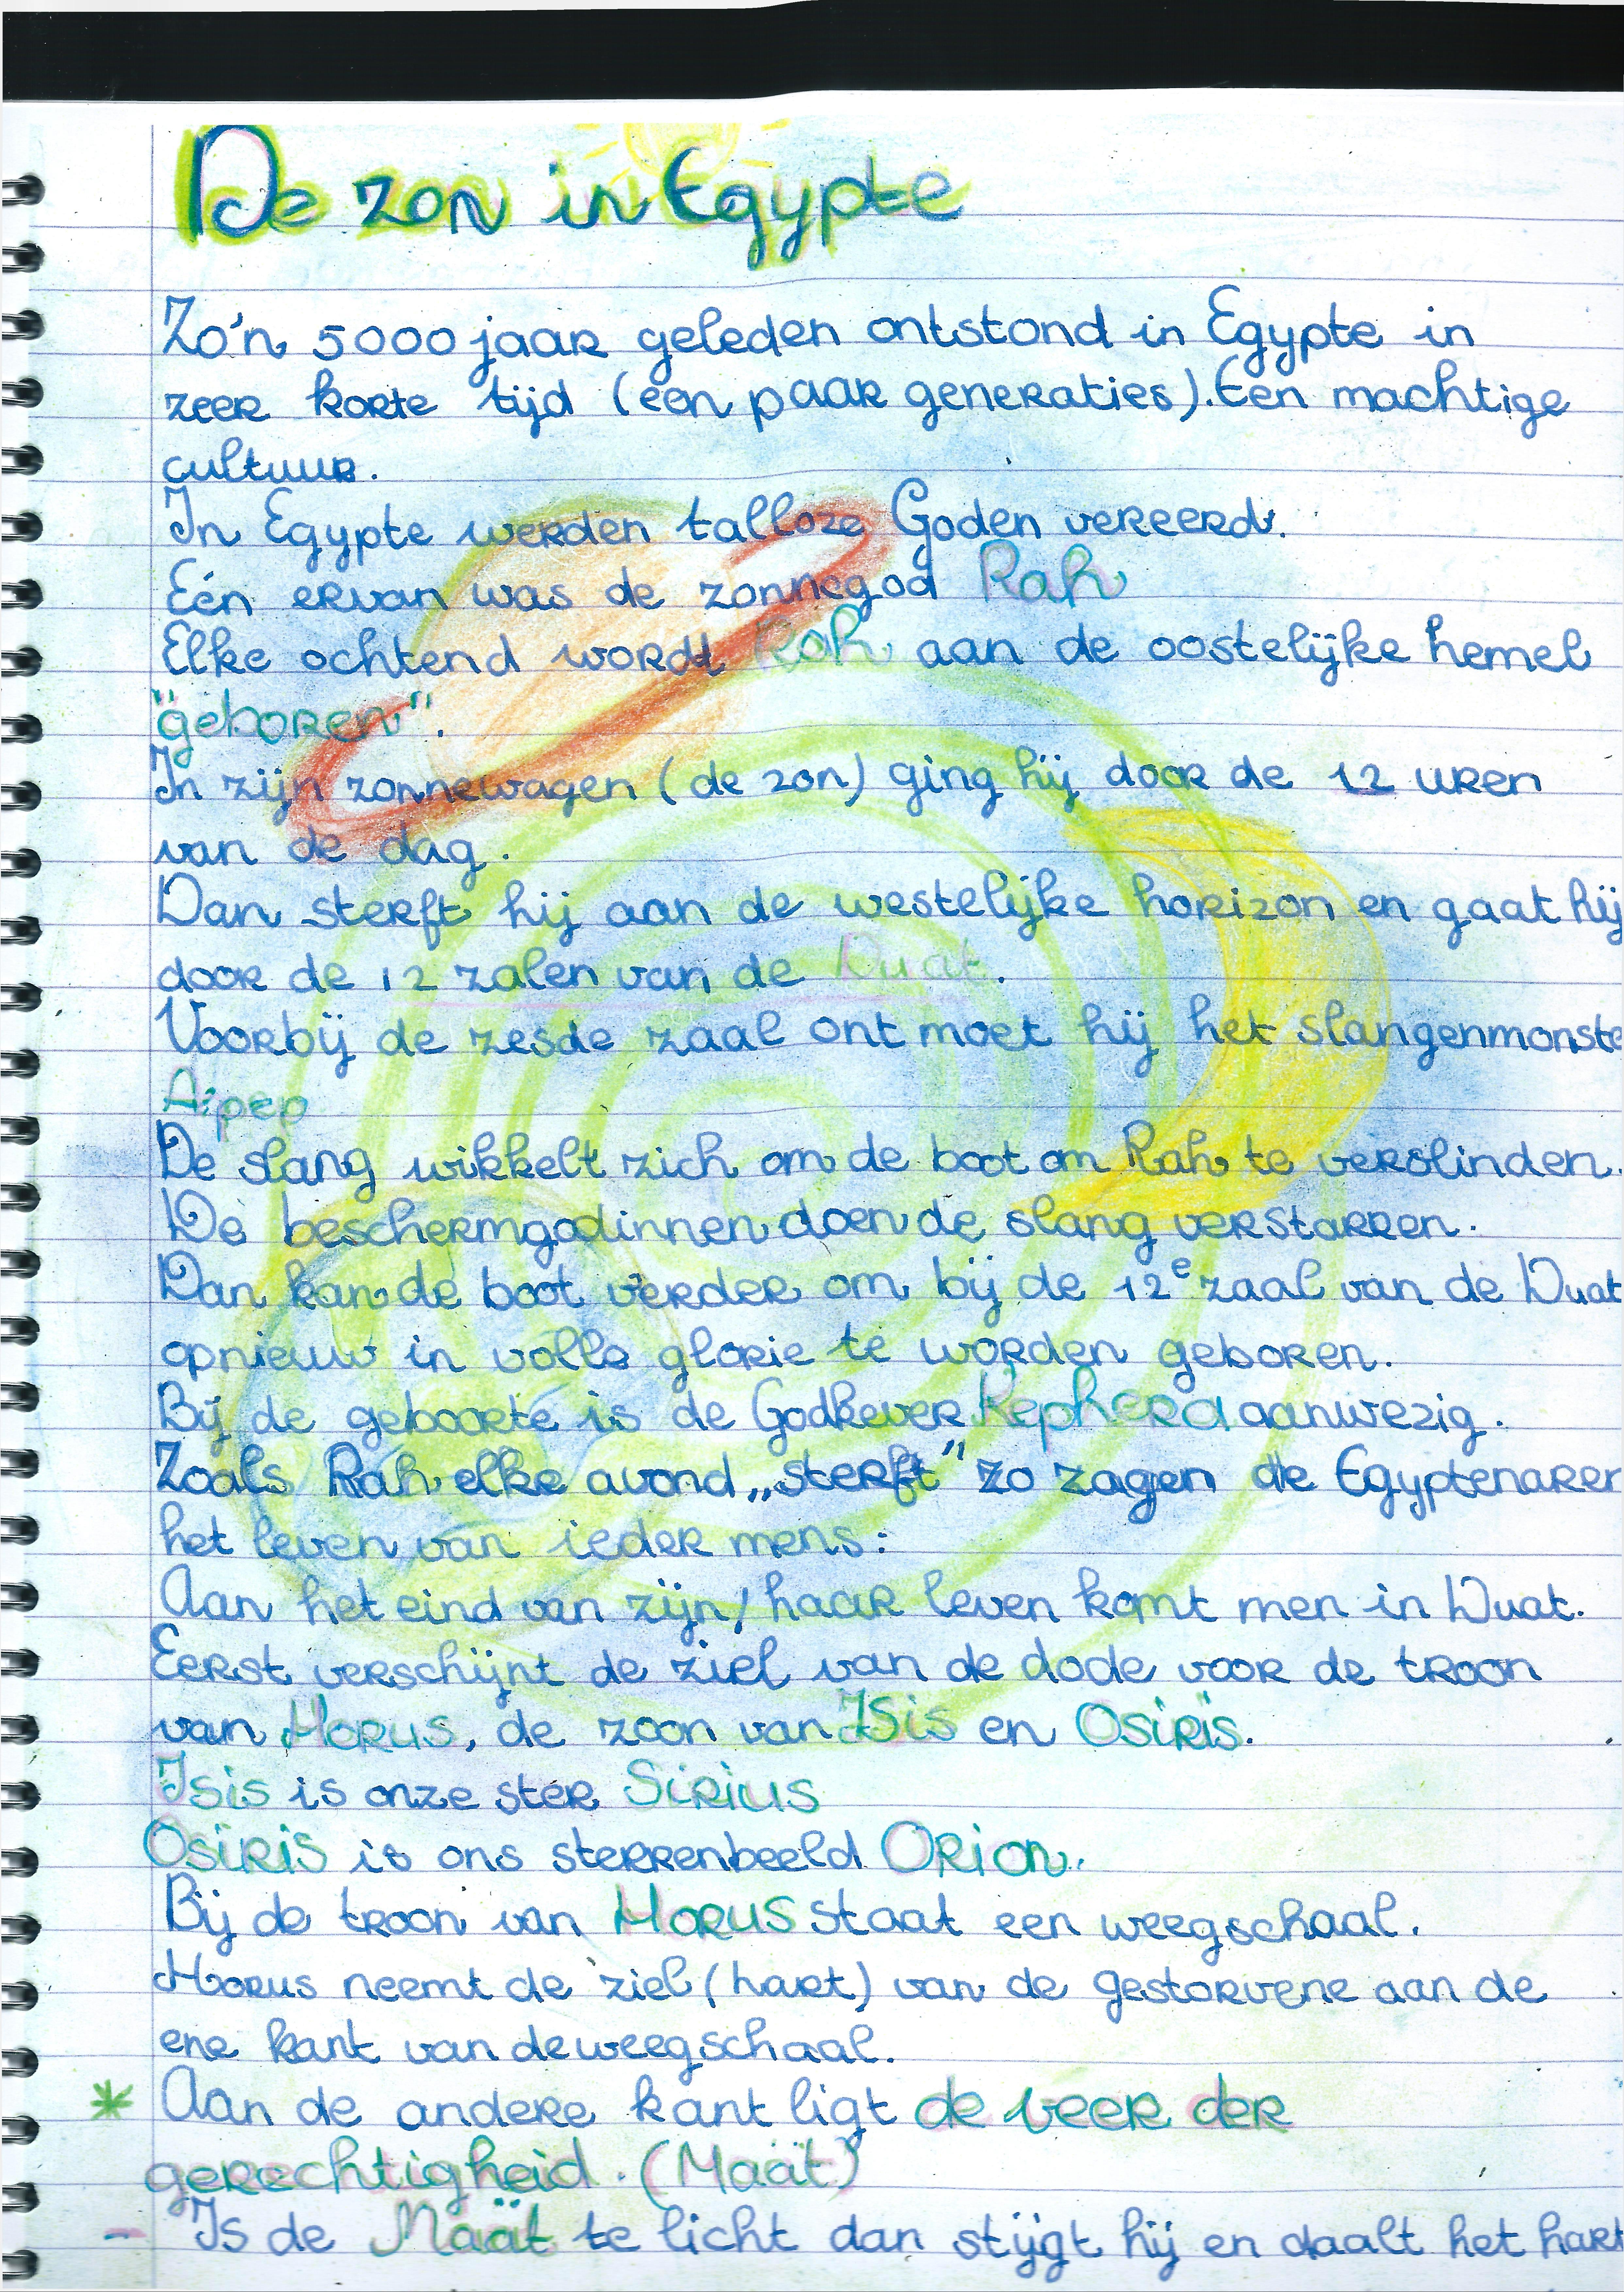 De zon in Egypte
Zo'n 5000 jaar geleden ontstond in Egypte in
zeer korte tijd (een paar generaties). Een machtige
cultuur.
In Egypte werden talloze Goden vereerd.
Eén ervan was de zonnegod Rah
Elke ochtend wordt Rah aan de oostelijke hemel
"geboren".
In zijn zonnewagen (de zon) ging hij door de 12 uren
van de dag.
Dan sterft hij aan de westelijke horizon en gaat hij
door de 12 zalen van de Duat.
Voorbij de zesde zaal ont moet hij het slangenmonste
A:pep
De slang wikkelt zich om de boot om Rah te verslinden.
De beschermgodinnen doen de slang verstarren.
Dan kan de boot verder om bij de 12e zaal van de Duat
opnieuw in volle glorie te worden geboren.
Bij de geboorte is de Godkever Kephera aanwezig.
Zoals Rah elke avond „sterft" zo zagen de Egyptenaren
het leven van ieder mens:
Aan het eind van zijn/haar leven komt men in Duat.
Eerst verschijnt de ziel van de dode voor de troon
van Horus, de zoon van Isis en Osiris.
Isis is onze ster Sirius
Osiris is ons sterrenbeeld Orion.
Bij de troon van Horus staat een weegschaal.
Horus neemt de ziel (hart) van de gestorvene aan de
ene kant van de weegschaal.
* Aan de andere kant ligt de veer der
gerechtigheid. (Maät)
- Is de Maät te licht dan stijgt hij en daalt het hart